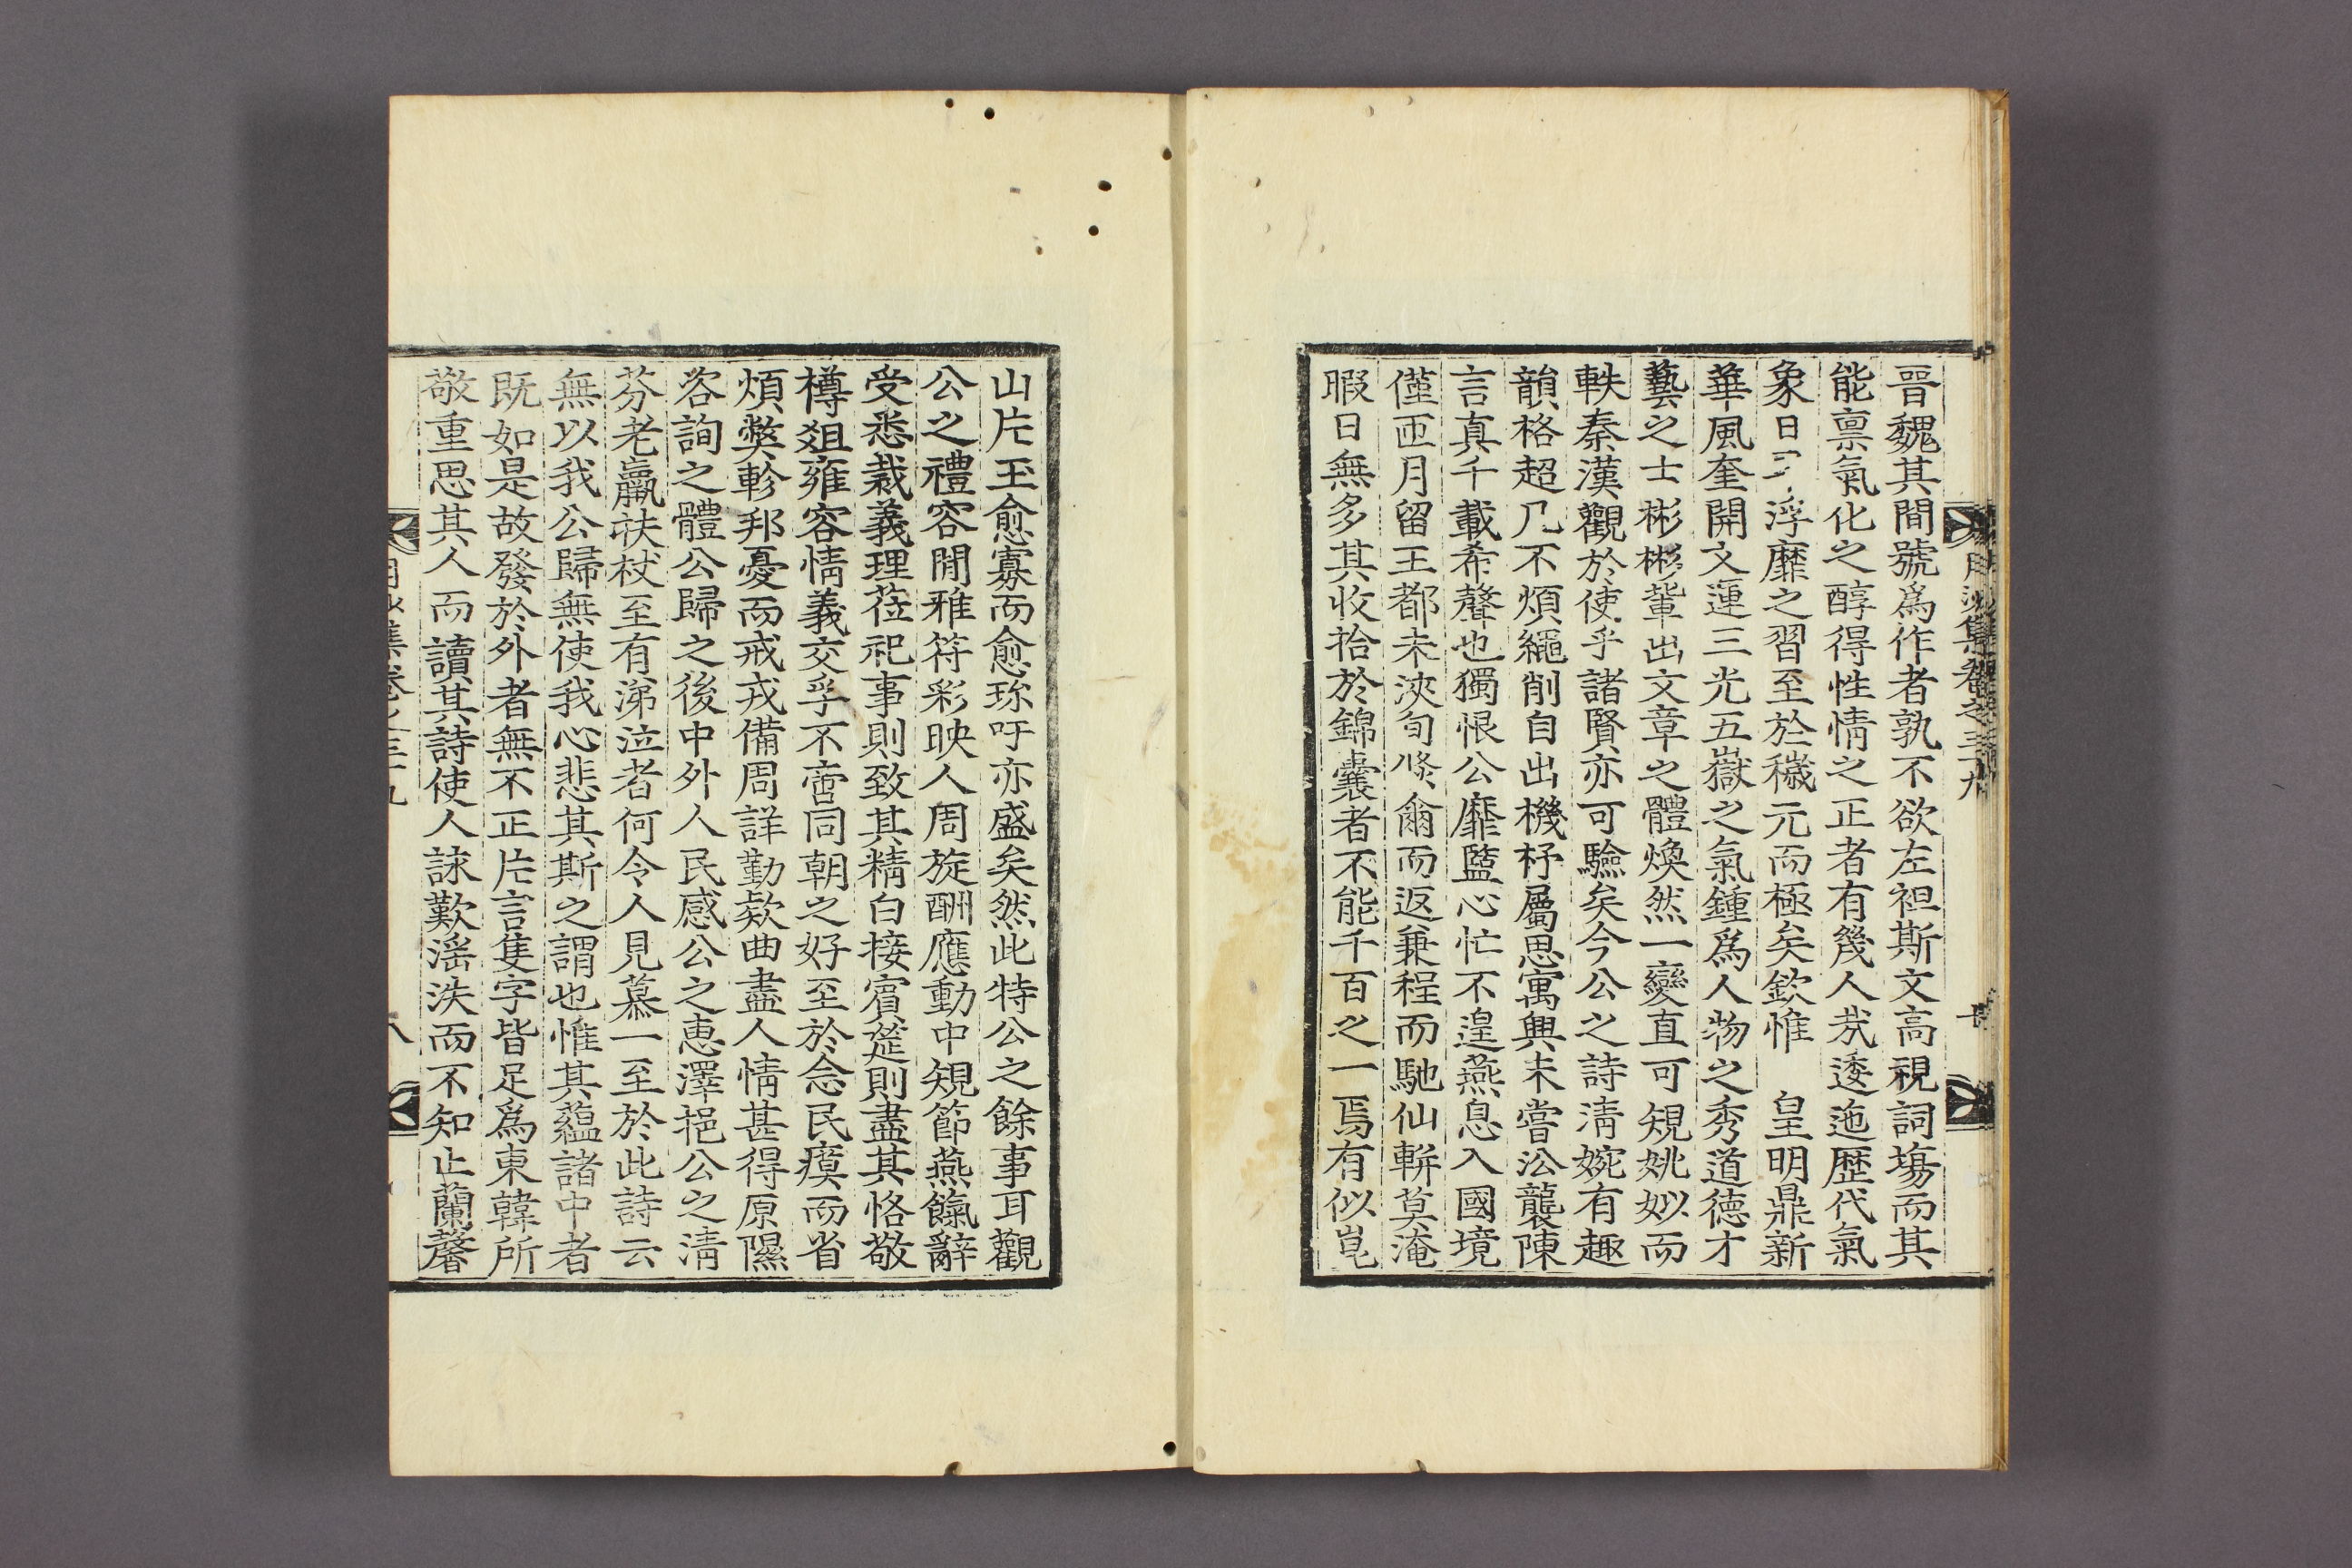 晉魏其間號爲作者孰不欲左袒斯文高視詞塲而其
能禀氣化之醇得性情之正者有幾人㢤逶迤歷代氣
象日浮靡之習至於穢元而極矣欽惟 皇明鼎新
華風奎開文運三光五嶽之氣鍾爲人物之秀道德才
藝之士彬彬輩出文章之體煥然一變直可規姚姒而
軼秦漢觀於使乎諸賢亦可驗矣今公之詩淸婉有趣
韻格超凡不煩繩削自出機杼屬思寓興未嘗沿襲陳
言真千載希聲也獨恨公靡盬心忙不遑燕息入國境
僅匝月留王都未浹旬倐爾而返兼程而馳仙軿莫淹
暇日無多其收拾於錦囊者不能千百之一焉有似崑
山片玉愈寡而愈珎吁亦盛矣然此特公之餘事耳觀
公之禮容閒雅符彩映人周旋酬應動中規節燕餼辭
受悉裁義理莅祀事則致其精白接賓筵則盡其恪敬
樽爼雍容情義交孚不啻同朝之好至於念民瘼而省
煩弊軫邦憂而戒戎備周詳勤欵曲盡人情甚得原隰
咨詢之體公歸之後中外人民感公之惠澤挹公之淸
芬老羸扶杖至有涕泣者何令人見慕一至於此詩云
無以我公歸無使我心悲其斯之謂也惟其蘊諸中者
既如是故發於外者無不正片言隻字皆足爲東韓所
敬重思其人而讀其詩使人詠歎滛泆而不知止蘭馨
月沙集卷之三十九
八